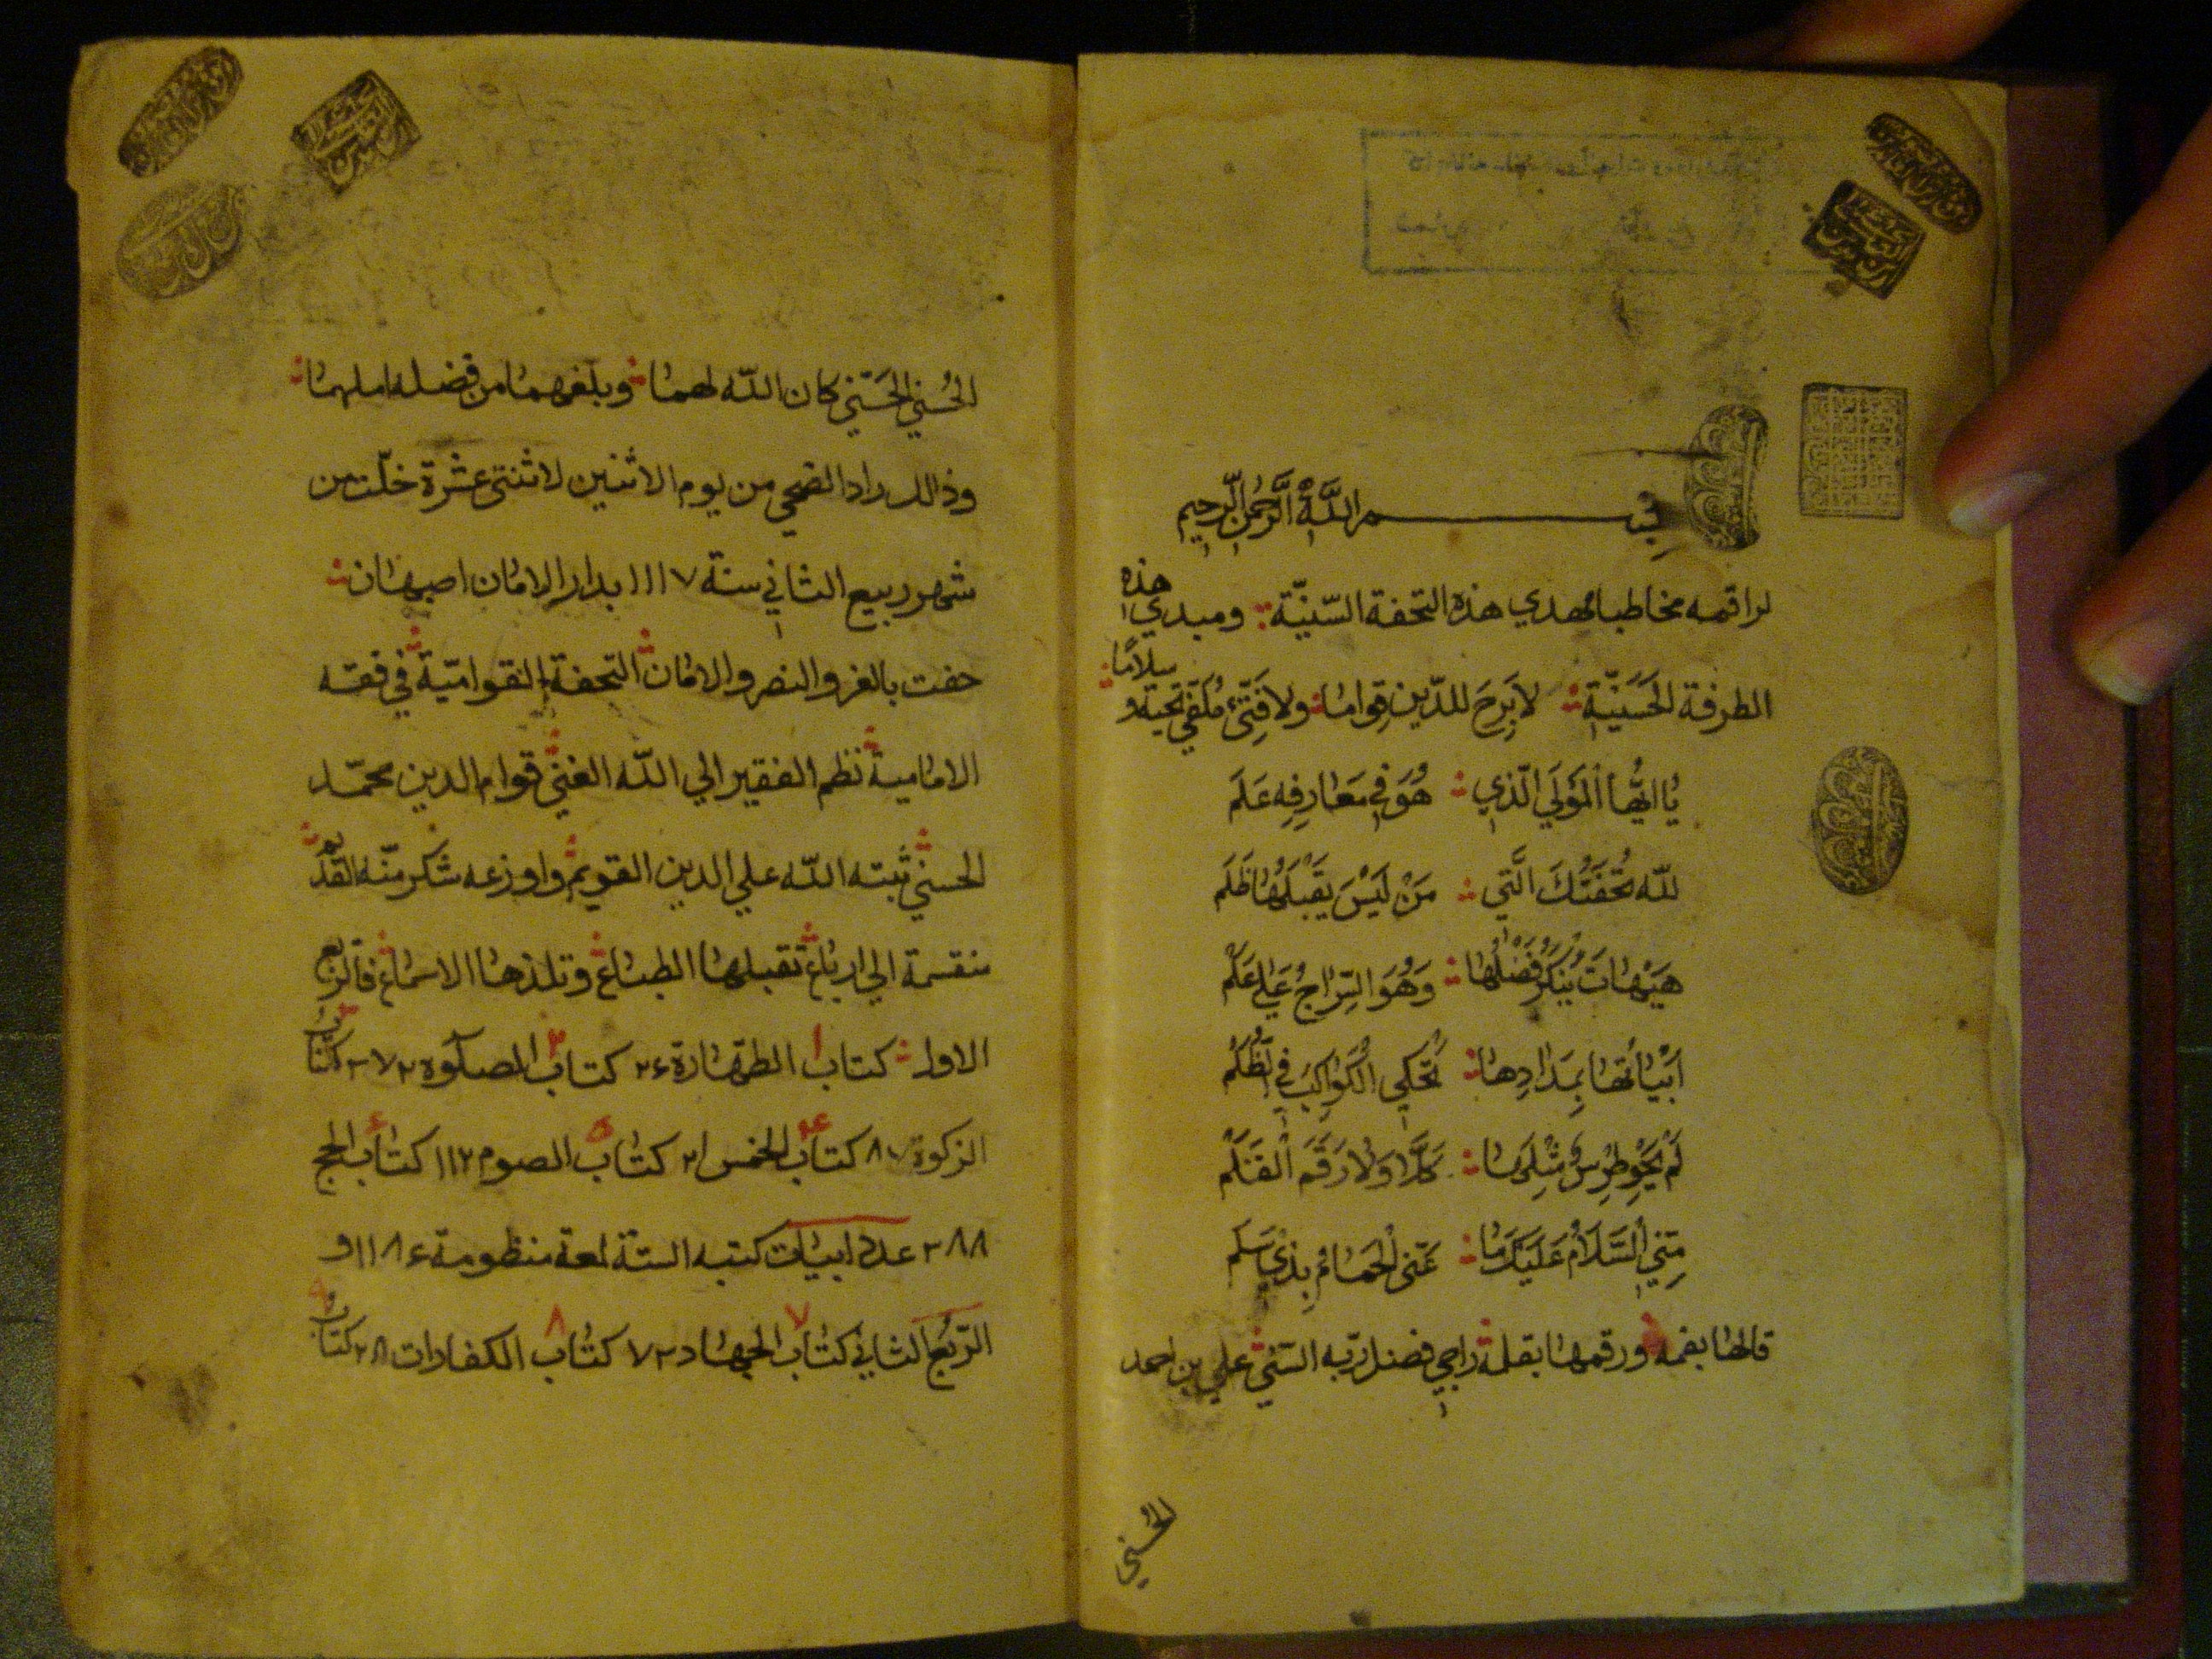 بسم الله الرحمن الرحيم
لراقمه مخاطبا لمهدي هذه التحفة السّنيّة ومبدي هذه
الطرفة الحَسَنيّة لا بَرِحَ للدّين قِوامًا ولا فَتِئَ مُكَفّي تحية و سلامًا
يا ايُّها المَولَي الّذي هُوَ في مَعَارِفِهِ عَلَم
للّه تُحْفَتُكَ الَّتي مَنْ لَيْسَ يَقبَلُهَا ظَلَم
هَيْهَاتَ يُنْكَرُ فَضْلُهَا وَهُوَ السِّرَاجُ عَلي عَلَم
اَبْيَاتُهَا بِمِدَادِهَا تَحْكي الكَوَاكِبَ في الظُّلَم
لَمْ يَحْوِ طِرْسٌ مِثْلَهَا كَلَّا وَلَا رَقَمَ الْقَلَم
مِنّي السَّلَامُ عَلَيْكَ مَا غَنّى الْحَمَائِمُ بِذي سَلَم
قالها بفمه ورقمها بقلمه راجي فضل ربّه السّني علي بن احمد
الحُسَيني
الحُسَيني الحَسَني كان اللّه لهما وبلغهما من فضله املهما
وذالك راد الضحي من يوم الاثنين لاثنتي عشرة خلّت من
شهر ربيع الثاني سنة ١١١٧ بدار الامان اصبهان
حفت بالعز والنصر والامان التّحفة القواميّة في فقه
الامامية نظم الفقير الي اللّه الغني قوام الدين محمّد
الحسني ثبته اللّه علي الدين القويم واوزعه شكر منّه القديم
منقسمة الي ارباع تقبلها الطباع وتلذها الاسماع فالربع
الاول كتاب الطهارة ٢٤ كتاب الصلوة ٢٧٢ كتاب
الزكوة ٨٧ كتاب الخمس ٢١ كتاب الصوم ١١٢ كتاب الحج
٢٨٨ عدد ابيات كتبه الستة لمعة منظومة ١١٨٤ و
الرّبع الثاني كتاب الجهاد ٧٢ كتاب الكفارات ٢٨ كتاب